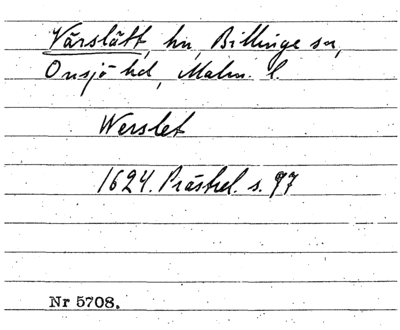 Vårslätt, hn, Billinge sn,
Onsjö hd, Malm. l.
Werslet
1624. Prästrel. s. 97
Nr 5708.